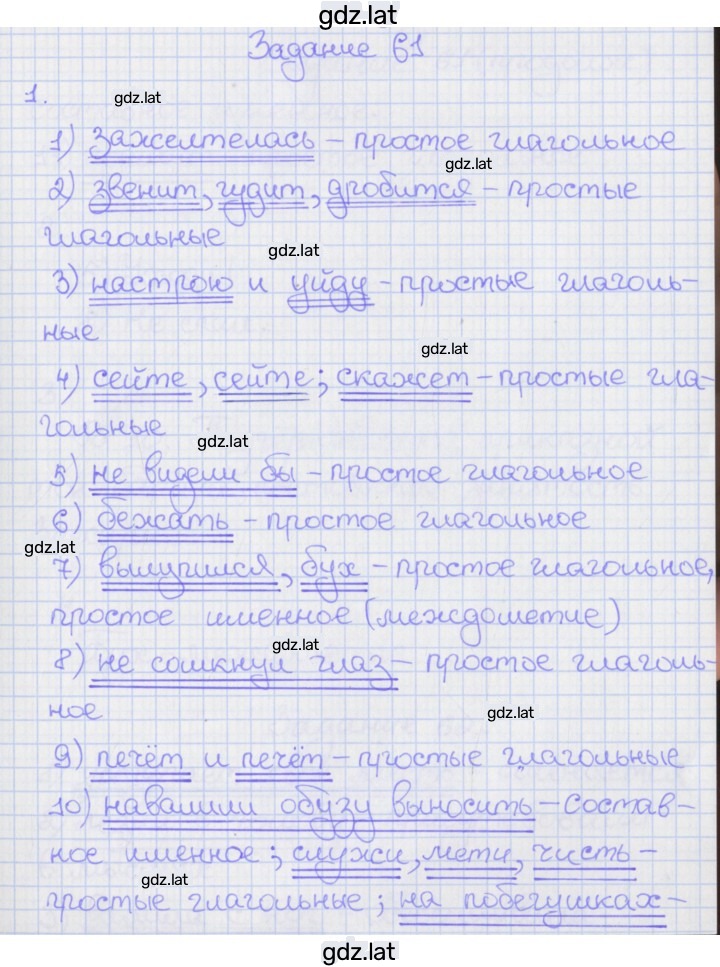 gdz.lat
Задание 61
1.
gdz.lat
1) Зажелтелась – простое глагольное
gdz.lat
2) звенит, гудит, дробится – простые
глагольные
gdz.lat
3) настрою и уйду – простые глаголь-
ные
gdz.lat
4) сейте, сейте; скажет – простые гла-
гольные
gdz.lat
5) не видели бы – простое глагольное
6) бежать – простое глагольное
gdz.lat
7) вылупился, бух – простое глагольное,
простое именное (междометие)
gdz.lat
8) не сомкнул глаз – простое глаголь-
ное
gdz.lat
9) печёт и печёт – простые глагольные
10) навалили обузу выносить – состав-
ное именное; служи, мети, чисть –
gdz.lat
простые глагольные; на побегушках –
gdz.lat